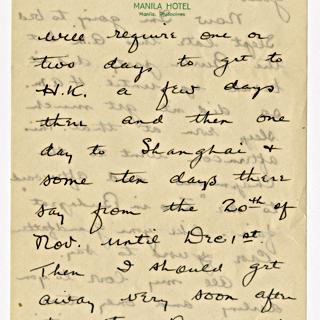 MANILA HOTEL
Manila, Philippines
will require one or
two days to get to
H.K. a few days
there and then one
day to Shanghai &
some ten days there
say from the 20th of
Nov. until Dec 1st.
Then I should get
away very soon after